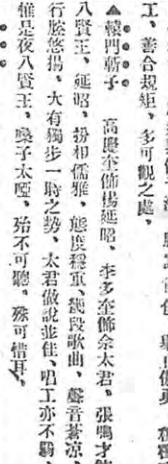 工、善合規矩、多可觀之處、
▲轅門斬子 高慶奎飾楊延昭、李多奎飾佘太君、張鳴才飾
八賢王、延昭、扮相儒雅、態度穩重、幾段歌曲、聲音蒼凉、
行腔悠揚、大有獨步一時之勢、太君做說並佳、唱工亦不弱、
惟是夜八賢王、嗓子太啞、殆不可聽、殊可惜耳、